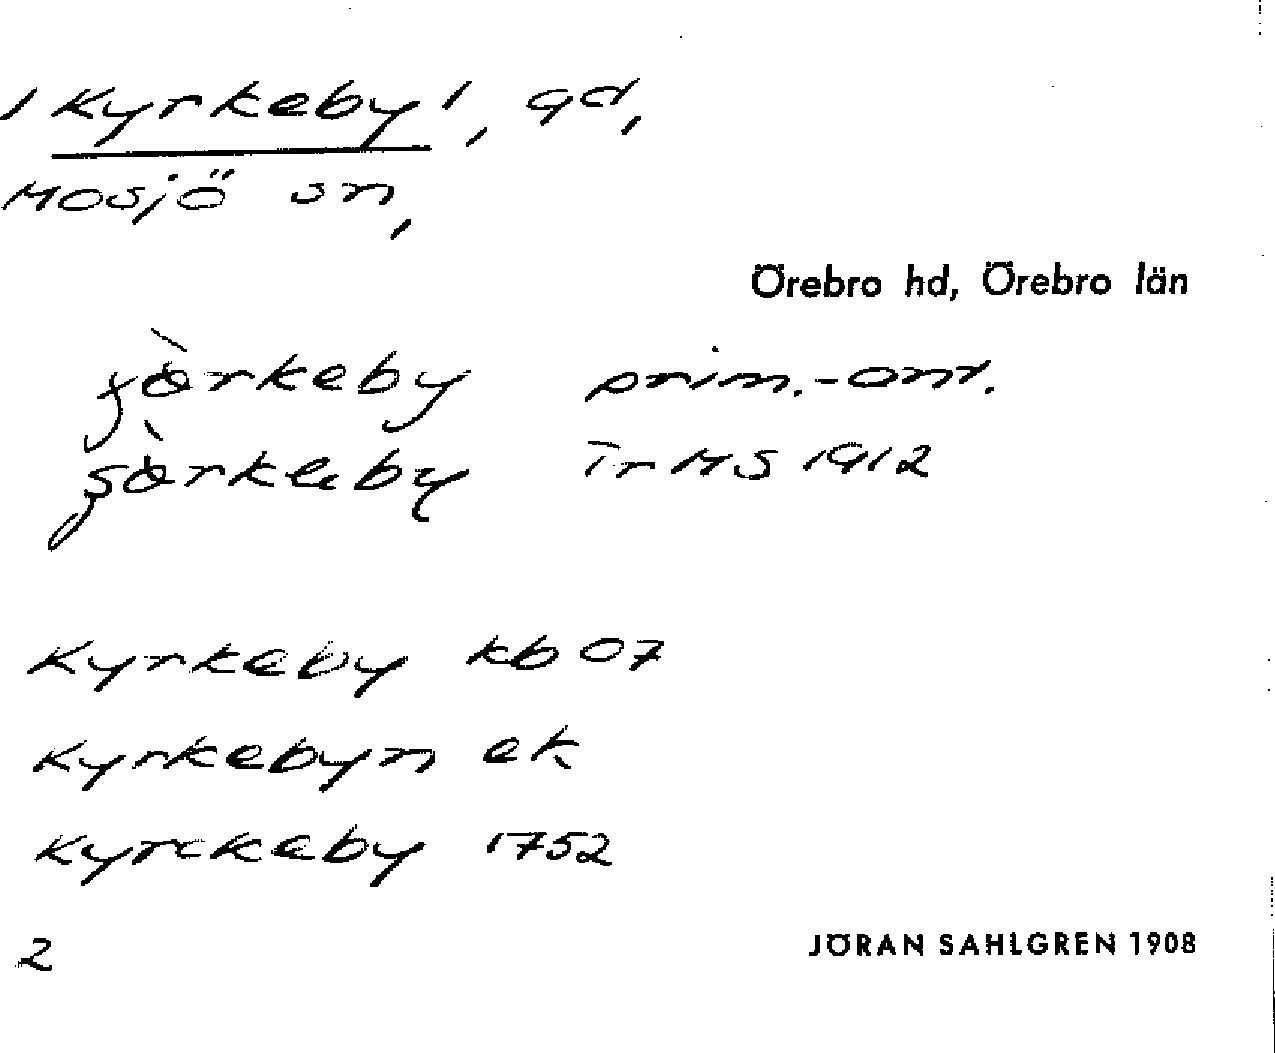 'Kyrkeby', gd,
Mosjö sn,
Örebro hd, Örebro län
prim.-ant.
i r MS 1912
Kyrkeby kb 07
Kyrkebyn ek
Kyrckeby 1752
2
JÖRAN SAHLGREN 1908